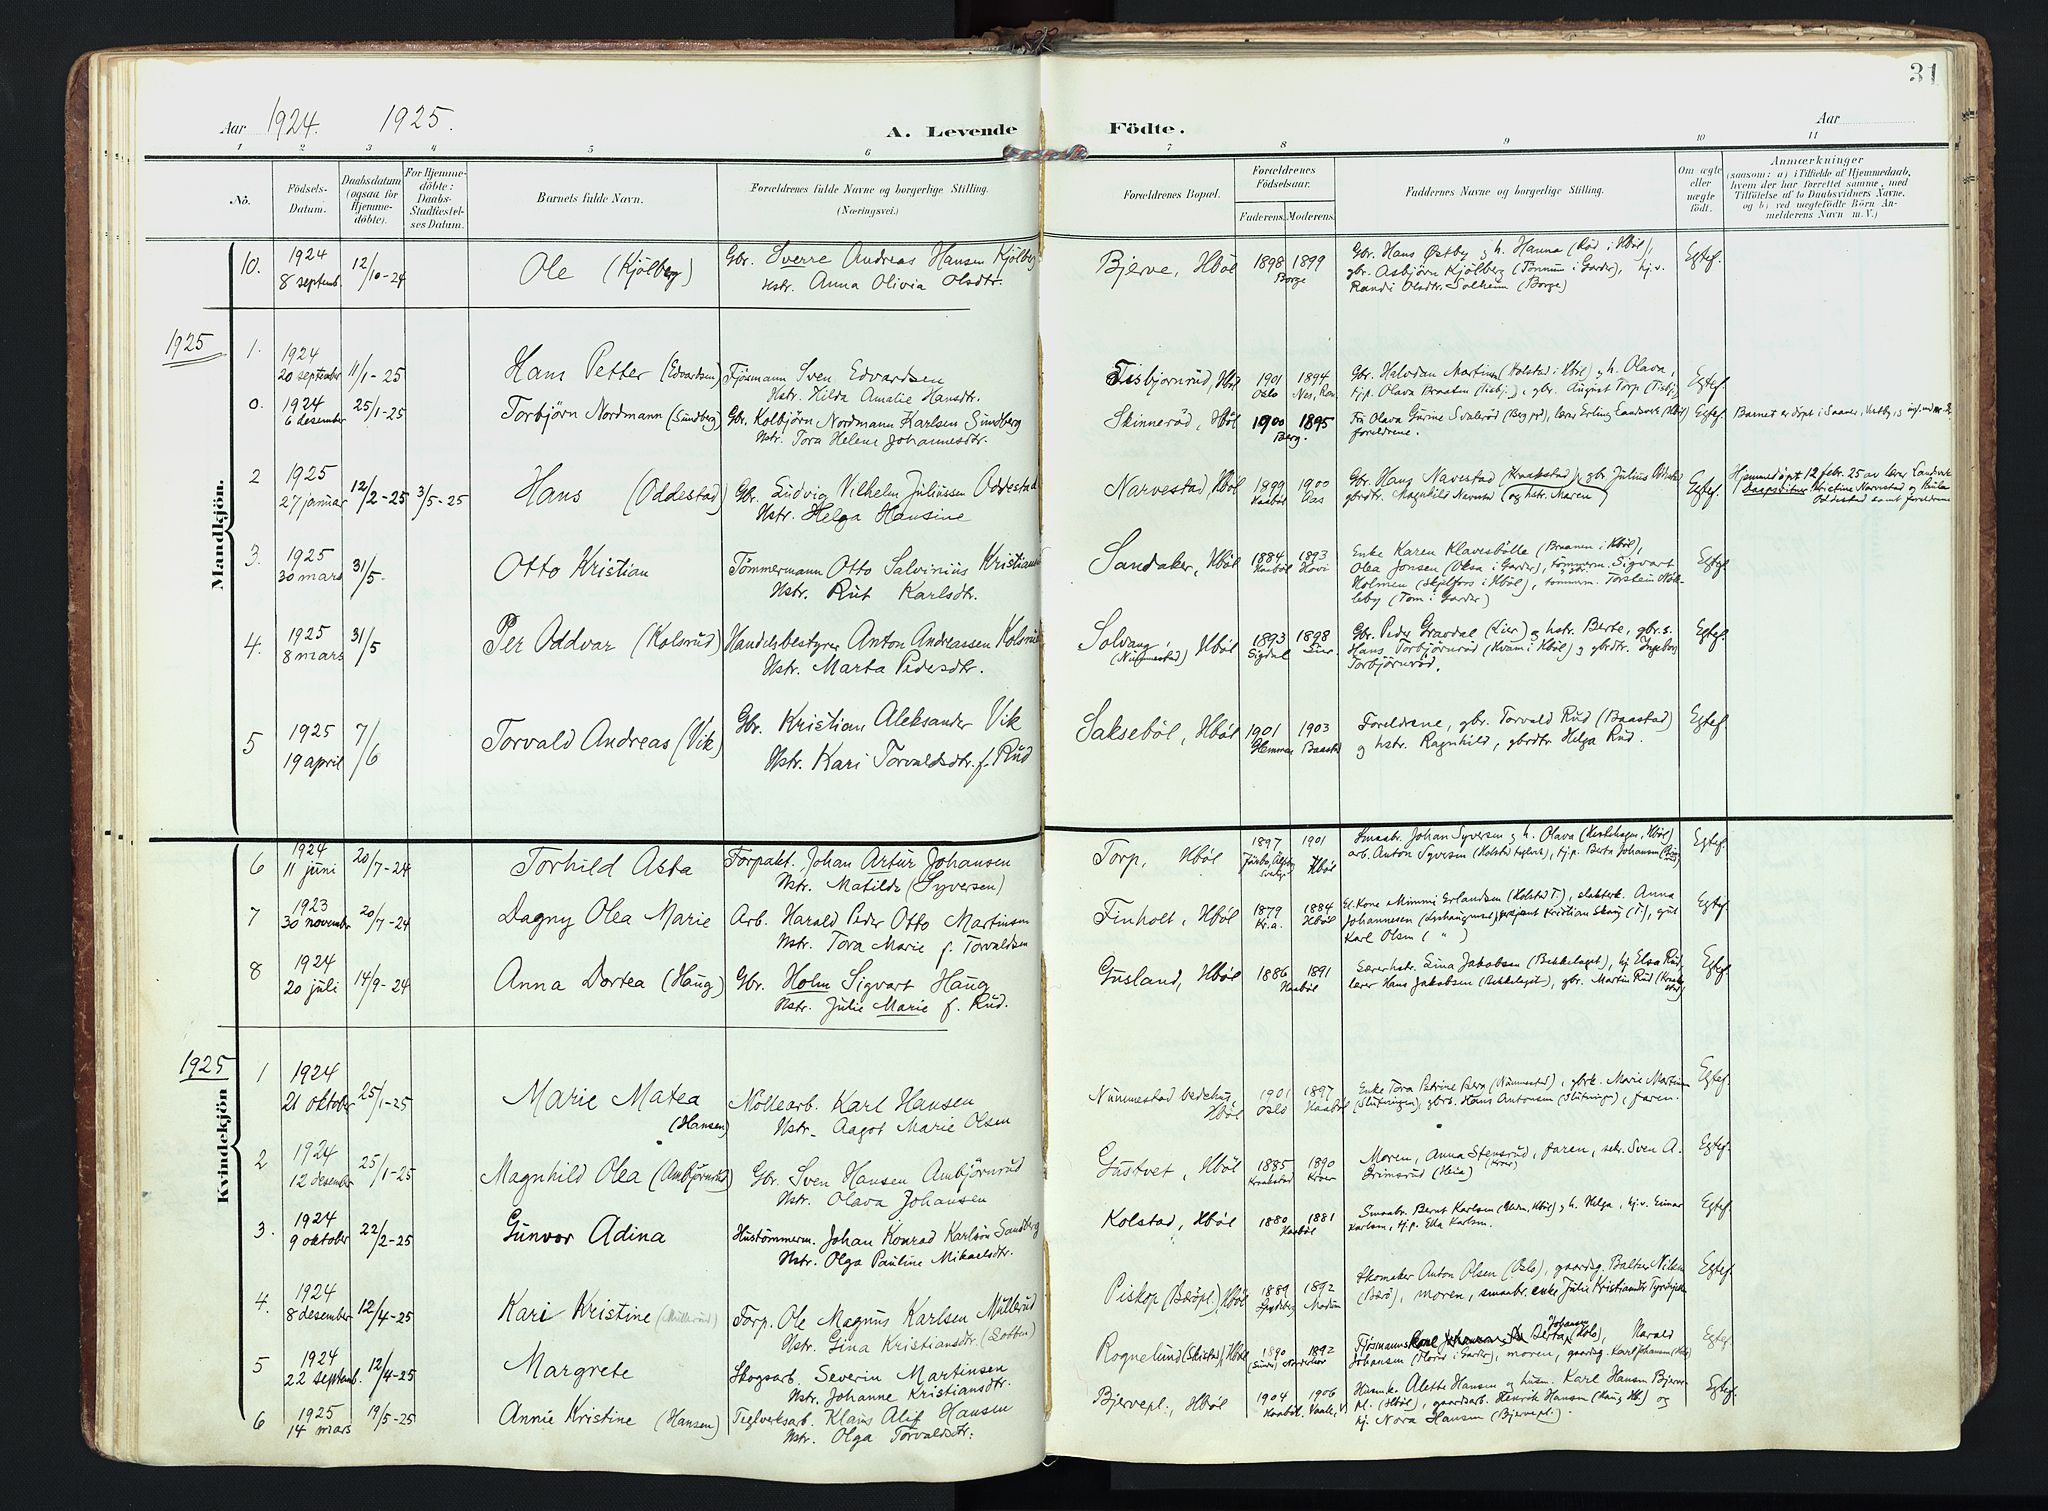 31
Aar 1924. 1925.
A. Levende Födte.
Aar
1 2 3 4 5 6 7 8 9 10 11
Nô.
Födsels-
Datum.
Daabsdatum
(ogsaa for
Hjemme-
döbte).
For Hjemme-
döbte:
Daabs-
Stadfæstel-
ses Datum.
Barnets fulde Navn.
Forældrenes fulde Navne og borgerlige Stilling.
(Næringsvei.)
Forældrenes Bopæl.
Forældrenes
Födselsaar.
Faderens. Moderens.
Faddernes Navne og borgerlige Stilling.
Om ægte
eller
uægte
födt.
Anmærkninger
(saasom: a) i Tilfælde af Hjemmedaab,
hvem der har forrettet samme, med
Tilföielse af to Daabsvidners Navne,
og b) ved uægtefödte Börn An-
melderens Navn m. V.)
Mandkjön.
10. 1924 8 septemb. 12/10-24 Ole (Kjölberg) Gbr. Sverre Andreas Hansen Kjölberg
Hstr. Anna Olivia Olsdtr.
Bjerve, Hböl 1898 1899 Borge
Gbr. Hans Østby og h. Hanna (Rød i Hböl),
gbr. Asbjörn Kjölberg (Tönnum i Garder), kj.v.
Randi Olsdtr. Solheim (Borge)
Egtef.
1925
1. 1924 20 september 11/1-25 Hans Petter (Edvardsen) Fjösmann Sven Edvardsen
Hstr. Hilda Amalie Hansdtr.
Tisbjornrud, Hböl 1901 Oslo 1894 Nes, Rom.
Gbr. Halvdan Martinsen (Kolstad i Hböl) og h. Olava,
tj.p. Olava Braaten (Tisbj.), gbr. August Torp (Tisbj.)
Egtef.
0. 1924 6 desember 25/1-25 Torbjörn Nordmann (Sundberg) Gbr. Kolbjörn Nordmann Karlsen Sundberg
Hstr. Tora Helene Johannesdtr.
Skinneröd, Hböl 1900 1895 Berg.
Fru Olava Gurine Svaleröd (Berg prd), lærer Erling Landsverk (Hböl)
foreldrene.
Egtef. Barnet er döpt i Saaner, Vestby, s ingl. nd nr. 2.
2 1925 27 januar 12/2-25 3/5-25 Hans (Oddestad) Gbr. Ludvig Vilhelm Juliussen Oddestad
Hstr. Helga Hansine
Narvestad, Hböl 1899 Haaböl 1900 Aas
Gbr. Hans Navestad (Kraakstad), gbr Julius Oddestad
gbrdtr. Magnhild Navestad (og hstr. Maren)
Egtef. Hjemmedöpt 12 febr. 25 av lærer Landsverk
Daapsvitner Kristine Narvestad og Paula
Oddestad samt foreldrene
3. 1925 30 mars 31/5. Otto Kristian Tömmermann Otto Salvinius Kristiansen
Hstr. Rut Karlsdtr.
Sandaker, Hböl 1884 Haaböl 1893 Hovi
Enke Karen Klavesbölle (Braanen i Hböl),
Olea Jonsen (Oksa i Garder), tömmerm. Sigvart
Holmen (Skjelfors i Hböl), og tömmerm. Torstein Hol-
leby (Tom i Garder)
Egtef
4. 1925 8 mars 31/5 Per Oddvar (Kolsrud) Handelsbestyrer Anton Andreassen Kolsrud
Hstr. Marta Pedersdtr.
Solvang, (Nummestad) Hböl 1893 Sigdal 1898 Lier.
Gbr. Peder Gravdal (Lier) og hstr. Berte, gbr.s.
Hans Torbjörnröd (Kvam i Hböl) og gbrdtr. Ingeborg
Torbjörnröd.
Egtef.
5 1925 19 april 7/6 Torvald Andreas (Vik) Gbr. Kristian Aleksander Vik
Hstr. Kari Torvaldsdtr. f. Rud
Saksebøl, Hböl 1901 Hemnes 1903 Baastad
Foreldrene, gbr. Torvald Rud (Baastad)
og hstr. Ragnhild, gbrdtr. Helga Rud.
Egtef.
Kvindekjön
6 1924 11 juni 20/7-24 Torhild Asta Forpakt. Johan Artur Johansen
Hstr. Matilde (Syversen)
Torp, Hböl 1897 1901 Hböl
Smaabr. Johan Syversen og h. Olava (Hestehagen, Hböl)
arb. Anton Syversen (Holstad teglverk), tj.p. Berta Johansen
Egtef.
7 1923 30 november 20/7-24 Dagny Olea Marie Arb. Harald Peder Otto Martinsen
Hstr. Tora Marie f. Torvaldsen
Finholt, Hböl 1879 Kr.a. 1884 Hböl
Kone Mimmi Erlandsen (Holstad T.), slakterk. Anna
Johannesen (Lyshaugmoss), sersjant Kristian Skaug (T.), gut
Karl Olsen ( " )
Egtef.
8 1924 20 juli 14/9-24 Anna Dortea (Haug) Gbr. Holm Sigvart Haug
Hstr. Julie Marie f. Rud.
Gusland, Hböl 1886 1891 Haaböl
Lærerhstr. Lina Jakobsen (Bekkelaget), kj Elsa Rud,
lærer Hans Jakobsen (Bekkelaget), gbr. Martin Rud
Egtef.
1925
1 1924 21 oktober 25/1-25 Marie Matea (Hansen) Möllearb. Karl Hansen
Hstr. Aagot Marie Olsen
Nummestad bedehus, Hböl 1901 Oslo 1897 Haaböl
Enke Tora Petrine Berg (Nummestad), gbrk. Marie Martinsen
(Slutningen), gbrs. Hans Antonsen (Slutningen), faren.
Egtef.
2 1924 12 desember 25/1-25 Magnhild Olea (Ambjörnrud) Gbr. Sven Hansen Ambjörnrud
Hstr. Olava Johansen
Gustvet, Hböl 1885 Kraakstad 1890 Kroer
Moren, Anna Stensrud, (Kroer) faren, sekr. Sven A.
Grimsrud (Heia)
Egtef.
3. 1924 9 oktober 22/2-25 Gunvor Adina Hustömmerm. Johan Konrad Karlsön Sandberg
Hstr. Olga Pauline Mikaelsdtr.
Kolstad, Hböl 1880 1881 Haaböl
Smaabr. Bernt Karlsen og h. Helga, kj.v. Einar
Karlsen, tj.p. Ella Karlsen.
Egtef
4. 1924 8 desember 12/4-25 Kari Kristine (Mellerud) Torp. Ole Magnus Karlsen Mellerud
Hstr. Gina Kristiansdtr. (Sotten)
Piskop (Bæröpl.), Hböl 1889 Spydeberg 1892 Modum
Skomaker Anton Olsen (Oslo), gaardsg. Baltzer Nilsen
(Bærö), moren, smaabr. enke Julie Kristiansdtr
Egtef.
5 1924 22 septemb. 12/4-25 Margrete Skogsarb. Severin Martinsen
Hstr. Johanne Kristiansdtr.
Rognelund (Skistad), Hböl 1890 1892 Nordehov
Fjösmannskone Berta Johansen (Hob), Harald
Johansen (Hored i Garder), moren, gaardsg. Karl Johansen
Egtef
6 1925 14 mars 19/5-25 Annie Kristine (Hansen) Teglverksarb. Klaus Alif Hansen
Hstr. Olga Torvaldsdtr.
Bjervepl., Hböl 1904 Haaböl. 1906 Vaaler
Husmk. Alette Hansen og husm. Karl Hansen Bjerve-
pl. (Hböl), gaardsarb. Henrik Hansen (Haug, Hb) og
kj. Nora Hansen (Bjervepl.).
Egtef.